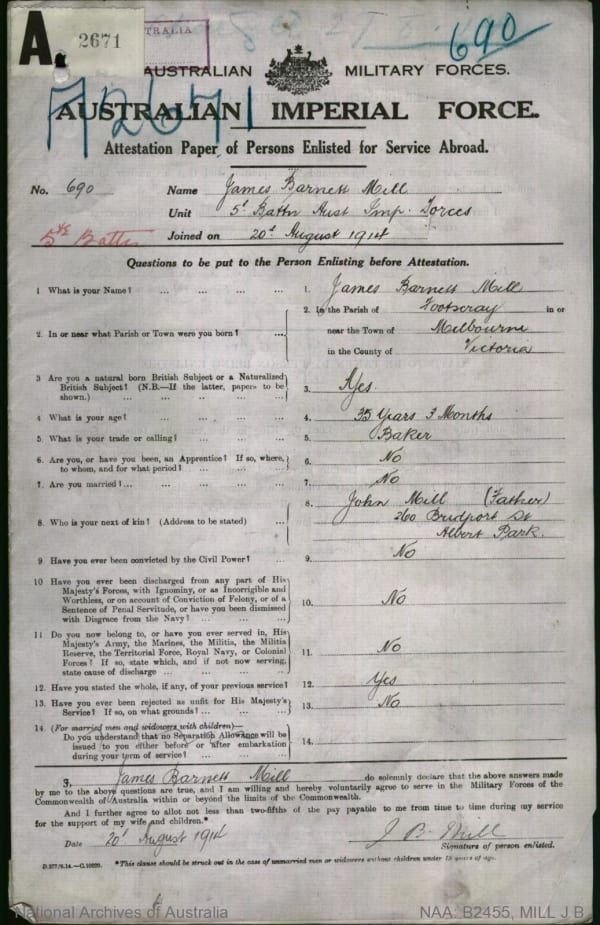 A.
2671
TRALIA
690
A2671
AUSTRALIAN MILITARY FORCES.
AUSTRALIAN IMPERIAL FORCE.
Attestation Paper of Persons Enlisted for Service Abroad.
No. 690 Name James Barnett Mill
Unit 5t Battn Aust Imp. Forces
5th Battn Joined on 20t August 1914
Questions to be put to the Person Enlisting before Attestation.
1 What is your Name? ... ... ... ... 1. James Barnett Mill
2. In or near what Parish or Town were you born? ... 2. In the Parish of Footscray in or
near the Town of Milbourne
in the County of Victoria
3 Are you a natural born British Subject or a Naturalized
British Subject? (N.B.—If the latter, papers to be
shown.) ... ... ... ... 3. Yes.
4. What is your age? ... ... ... ... 4. 35 Years 3 Months
5. What is your trade or calling? ... ... ... 5. Baker
6. Are you, or have you been, an Apprentice? If so, where,
to whom, and for what period? ... ... ... 6. No
7. Are you married? ... ... ... ... 7. No
8. Who is your next of kin? (Address to be stated) ... 8. John Mill (Father)
260 Bridport St
Albert Park.
9 Have you ever been convicted by the Civil Power? ... 9. No
10 Have you ever been discharged from any part of His
Majesty's Forces, with Ignominy, or as Incorrigible and
Worthless, or on account of Conviction of Felony, or of a
Sentence of Penal Servitude, or have you been dismissed
with Disgrace from the Navy? ... ... ... 10. No
11 Do you now belong to, or have you ever served in, His
Majesty's Army, the Marines, the Militia, the Militia
Reserve, the Territorial Force, Royal Navy, or Colonial
Forces? If so, state which, and if not now serving,
state cause of discharge ... ... ... 11. No
12. Have you stated the whole, if any, of your previous service? 12. Yes
13. Have you ever been rejected as unfit for His Majesty's
Service? If so, on what grounds? ... ... ... 13. No
14. (For married men and widowers with children)—
Do you understand that no Separation Allowance will be
issued to you either before or after embarkation
during your term of service? ... ... ... 14.
I, James Barnett Mill do solemnly declare that the above answers made
by me to the above questions are true, and I am willing and hereby voluntarily agree to serve in the Military Forces of the
Commonwealth of Australia within or beyond the limits of the Commonwealth.
And I further agree to allot not less than two-fifths of the pay payable to me from time to time during my service
for the support of my wife and children.*
Date 20t August 1914 J B Mill
Signature of person enlisted.
*This clause should be struck out in the case of unmarried men or widowers without children under 18 years of age.
National Archives of Australia NAA: B2455, MILL J B